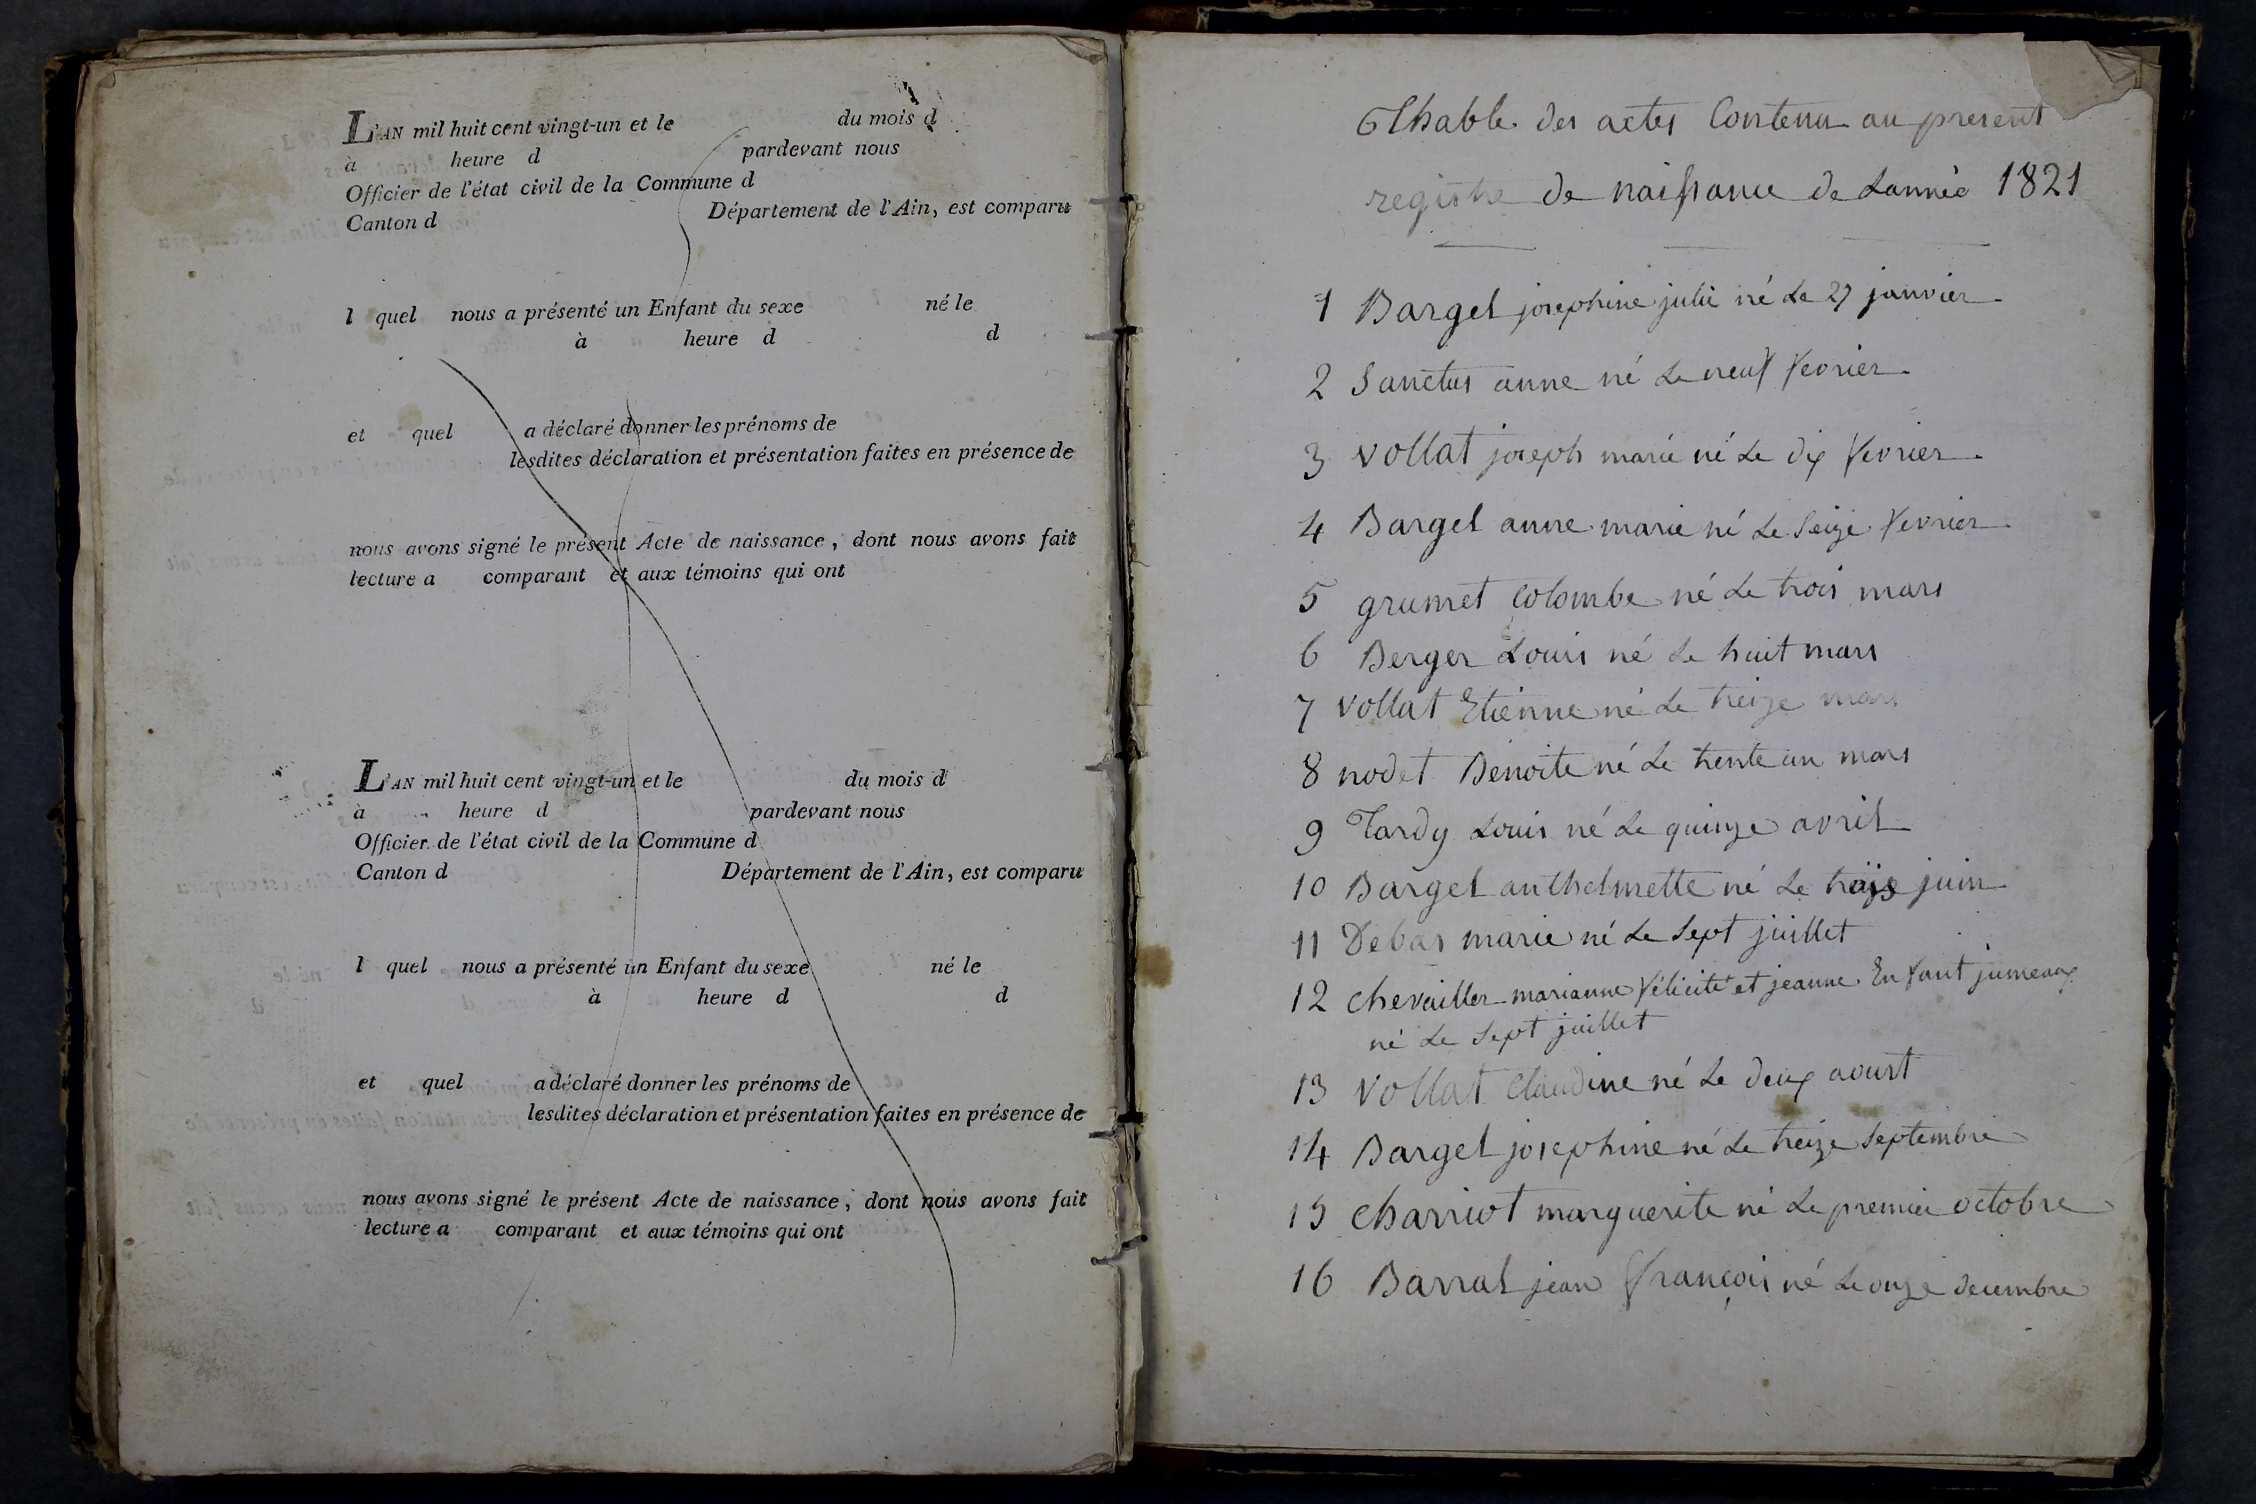 L'AN mil huit cent vingt-un et le du mois d
à heure d pardevant nous
Officier de l'état civil de la Commune d
Canton d Département de l'Ain, est comparu
l quel nous a présenté un Enfant du sexe né le
à heure d d
et quel a déclaré donner les prénoms de
lesdites déclaration et présentation faites en présence de
nous avons signé le présent Acte de naissance, dont nous avons fait
lecture a comparant et aux témoins qui ont
L'AN mil huit cent vingt-un et le du mois d
à heure d pardevant nous
Officier de l'état civil de la Commune d
Canton d Département de l'Ain, est comparu
l quel nous a présenté un Enfant du sexe né le
à heure d d
et quel a déclaré donner les prénoms de
lesdites déclaration et présentation faites en présence de
nous avons signé le présent Acte de naissance, dont nous avons fait
lecture a comparant et aux témoins qui ont
Thable des actes Contenu au present
registre de naissance de Lannéé 1821
1 Bargel josephine julie né Le 27 janvier
2 Sanctus anne né Le neuf fevrier
3 vollat joseph marie né Le dix fevrier
4 Bargel anne marie né Le Seize fevrier
5 grumet Colombe né Le trois mars
6 Berger Louis né Le huit mars
7 vollat Etienne né Le treize mars
8 nodet Benoite né Le trente un mars
9 Tardy Louis né Le quinze avril
10 Bargel anthelmette né Le juin
11 Debas marie né Le Sept juillet
12 chevailler marianne félicité et jeanne Enfant jumeaux
né Le Sept juillet
13 vollat Claudine né Le deux aoust
14 Bargel josephine né Le treize Septembre
15 charriot marguerite né Le premier octobre
16 Barral jean françois né Le onze decembre